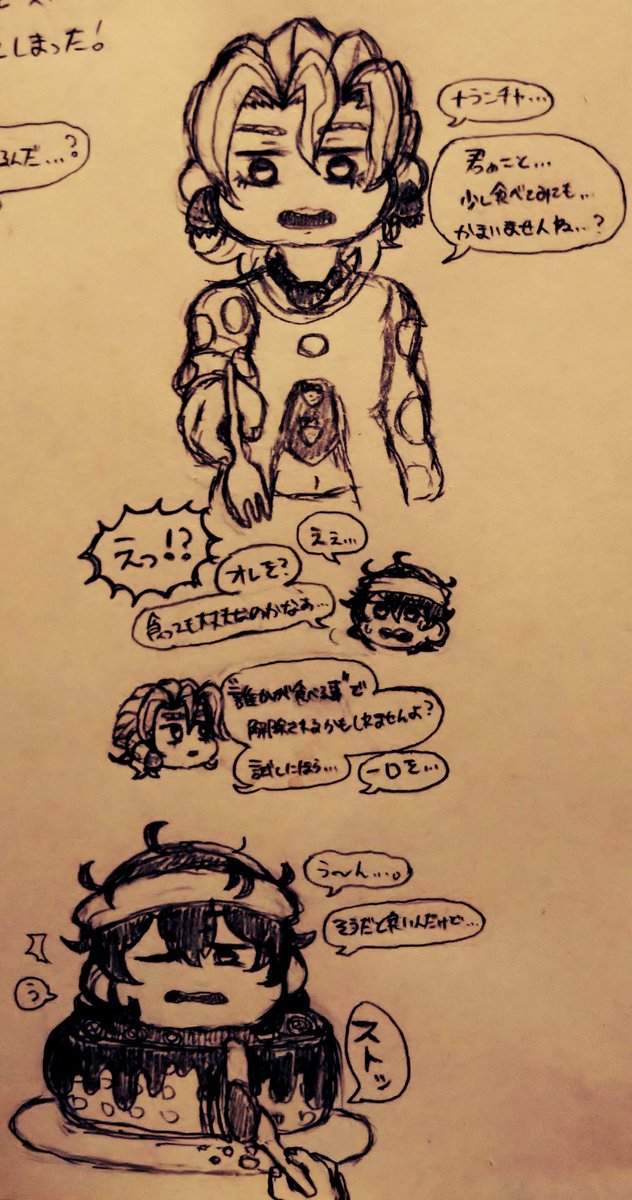 しまった!
るんだ…?
ナランチャ…
君のこと…
少し食べてみても…
かまいませんね…?
えっ!?
オレを?
えぇ…
食っても大丈夫なのかなぁ…
"誰かが食べる事"で
解除されるかもしれませんよ?
試しにほら…
一口を…
う〜ん…。
そうだと良いんだけど…
う
ストッ